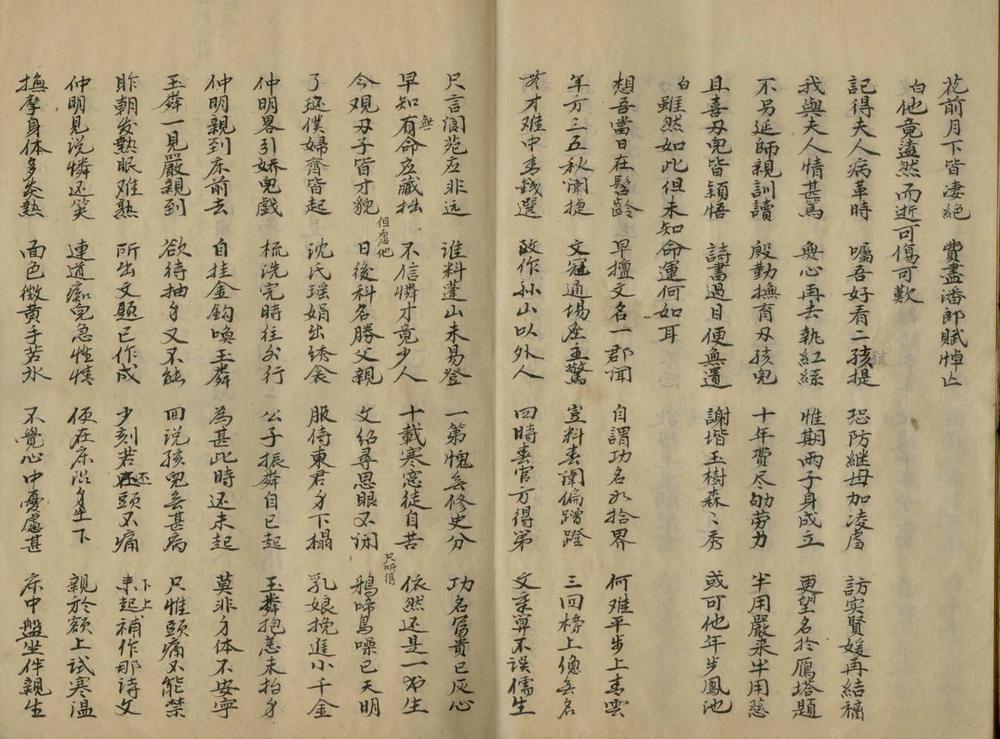 花前月下皆凄絕 費盡潘郎賦悼亡
白 他竟溘然而逝可傷可歎
記得夫人病革時 囑吾好看二孩提 恐防継母加凌虐 訪實賢媛再結褵
我與夫人情甚篤 無心再去執紅絲 惟期兩子身成立 更望名於鴈塔題
不另延師親訓讀 殷勤撫育刄孩児 十年費尽劬劳力 半用嚴来半用慈
且喜刄児皆穎悟 詩書過目便無遺 謝堦玉樹森々秀 或可他年步鳳池
白 雖然如此但未知命運何如耳
想吾當日在髫齡 早擅文名一郡闻 自謂功名如拾芥 何難平步上青雲
年方三五秋闈捷 文冠通場座主驚 豈料春闈偏蹭蹬 三回榜上總無名
才难中青銭選 改作孙山以外人 四時春官方得第 文章算不误儒生
尺言閬苑应非远 谁料蓬山未易登 一第愧無修史分 功名冨貴已灰心
早知有命应藏拙 不信憐才竟少人 十載寒窓徒自苦 依然还是一穷生
今观刄子皆才貌 但愿他日後科名勝父親 文绍尋思眼不闭 只听得鴉啼鳥噪已天明
了环僕婦齊皆起 沈氏瑶娟出綉衾 服侍東君身下榻 乳娘挽進小千金
仲明畧引娇児戲 梳洗完時往外行 公子振麟自已起 玉麟抱恙未抬身
仲明親到床前去 自挂金鈎喚玉麟 為甚此時还未起 莫非身体不安寧
玉麟一見嚴親到 欲待抽身又不能 回说孩児無甚病 只惟頭痛不能禁
昨朝发熱眠难熟 所出文題已作成 少刻若还頭不痛 下上起補作那诗文
仲明見说憐还笑 連道痴児急性情 便在床沿身坐下 親於額上試寒温
撫摩身体多炎熱 面色微黄手若氷 不覺心中憂慮甚 床中盤坐伴親生